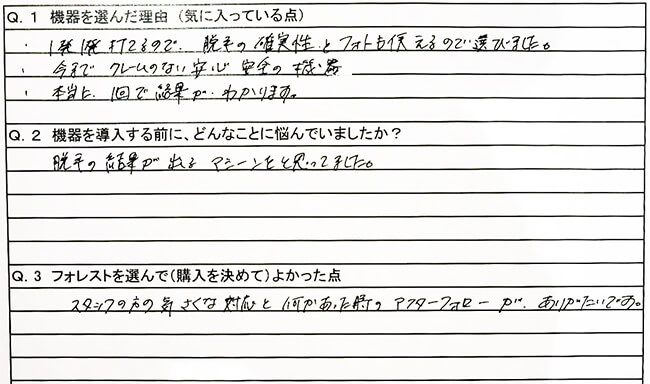 Q. 1 機器を選んだ理由（気に入っている点）
・1発1発打てるので、脱毛の確実性とフォトも使えるので選びました。
・今まで クレームのない安心 安全の機器
・本当に 1回で結果が、わかります。
Q. 2 機器を導入する前に、どんなことに悩んでいましたか？
脱毛の結果が出るマシーンをと思ってました。
Q. 3 フォレストを選んで（購入を決めて）よかった点
スタッフの方の気さくな対応と何かあった時のアフターフォローが、ありがたいです。